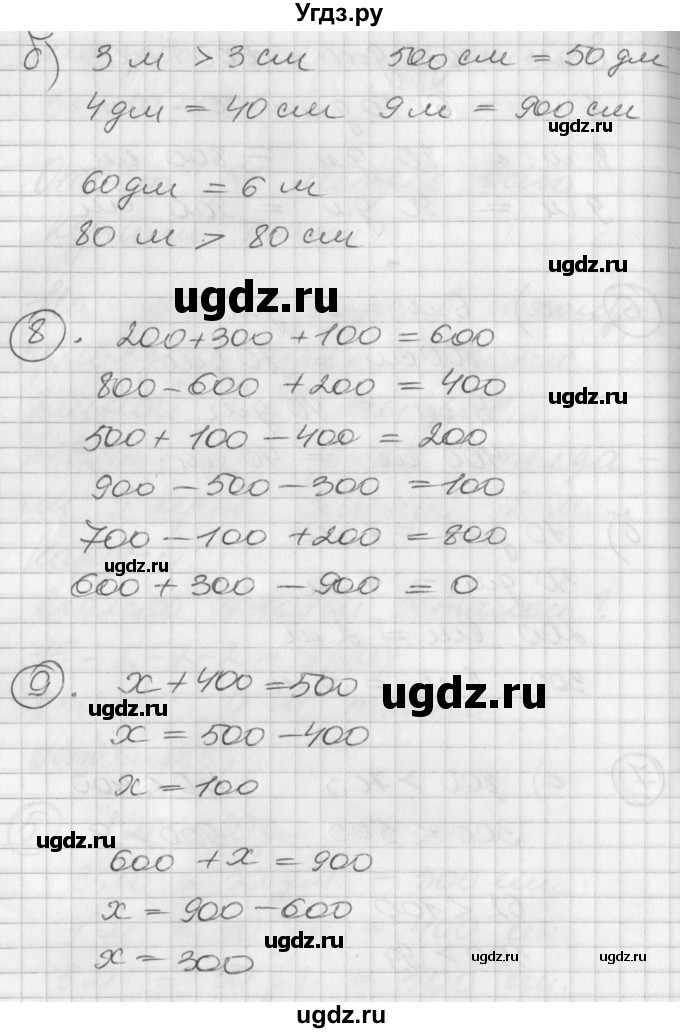 Угдз.ру
б) 3 м > 3 см 500 см = 50 дм
4 дм = 40 см 9 м = 900 см
ugdz.ru
60 дм = 6 м
80 м > 80 см
ugdz.ru
ugdz.ru
8. 200+300+100=600
800-600+200=400
ugdz.ru
500+100-400=200
900-500-300=100
700-100+200=800
ugdz.ru
600+300-900=0
9. x+400=500
ugdz.ru
ugdz.ru
x=500-400
x=100
ugdz.ru
600+x=900
x=900-600
ugdz.ru
x=300
ugdz.ru